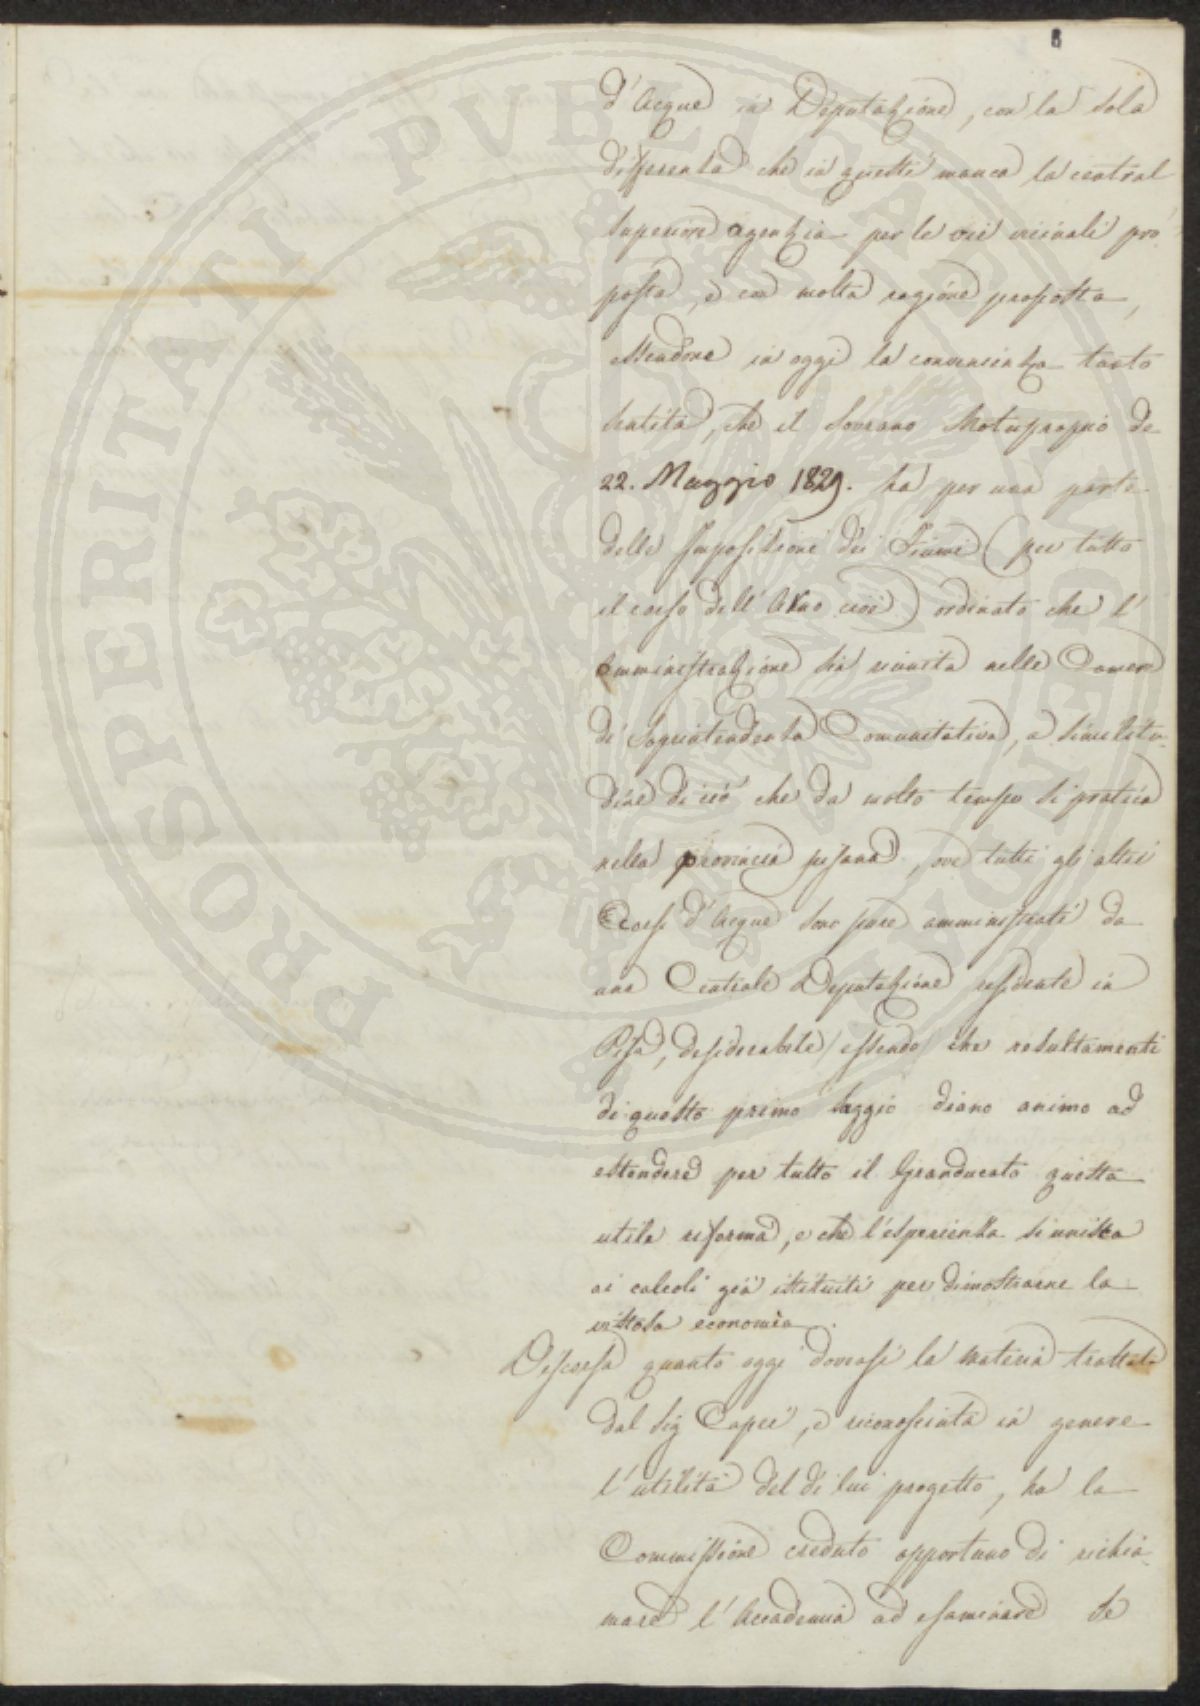 8
d'Acque in Deputazione, con la sola
differenza che in questi manca la central
superiore agenzia per le vie vicinali pro
posta, e con molta ragione proposta,
essendone in oggi la convenienza tanto
sentita, che il Sovrano Motuproprio de
22. Maggio 1829. ha per una parte
delle Imposizioni dei Fiumi (per tutto
il corso dell'Arno cioè) ordinato che l'
amministrazione sia riunita nelle Camere
di Soprintendenza Comunitativa, a similitu-
dine di ciò che da molto tempo si pratica
nella provincia pisana, ove tutti gli altri
Corsi d'Acque sono pure amministrati da
una Centrale Deputazione residente in
Pisa, desiderabile essendo che resultamenti
di questo primo saggio diano animo ad
estendere per tutto il Granducato questa
utile riforma, e che l'esperienza si unisca
ai calcoli già istituiti per dimostrarne la
vistosa economia.
Discorsa quanto oggi dovrasi la materia trattata
dal Sig Capei, e riconosciuta in genere
l'utilità del di lui progetto, ha la
Commissione creduto opportuno di richia-
mare l'Accademia ad esaminare se
PROSPERITATI PVBLICAE AVGENDAE